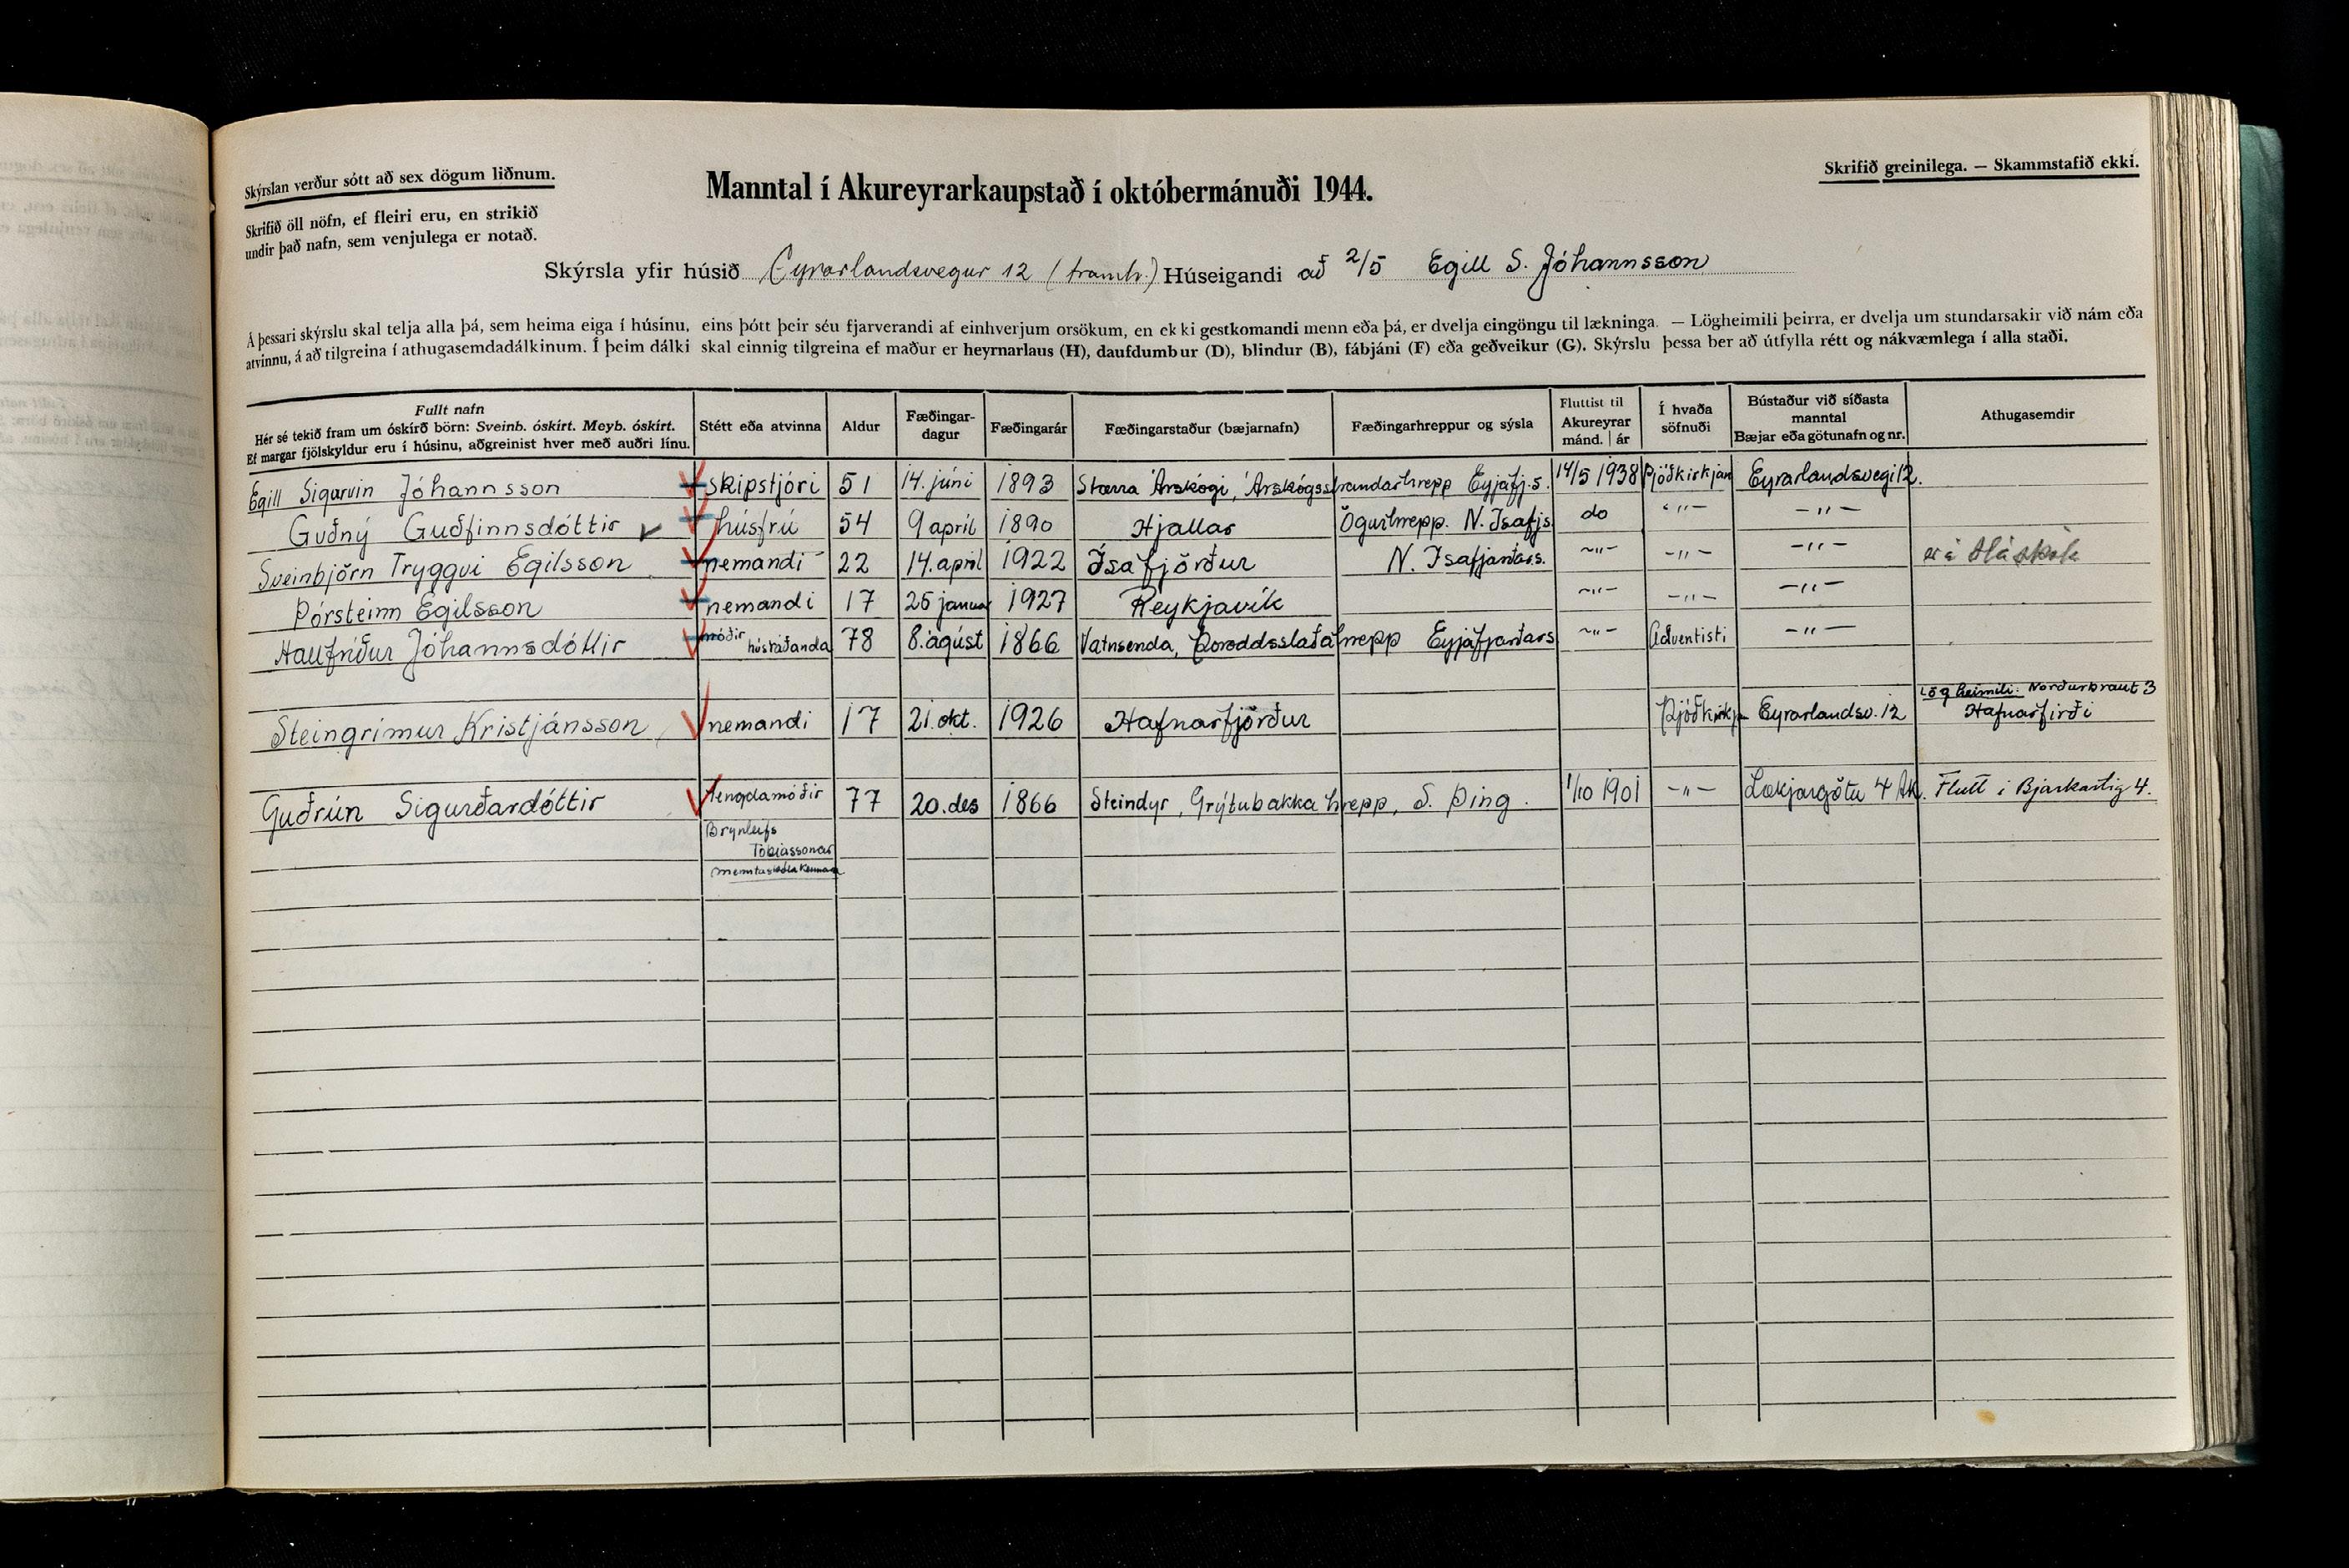 Skýrslan verður sótt að sex dögum liðnum.
Skrifið öll nöfn, ef fleiri eru, en strikið
undir það nafn, sem venjulega er notað.
Manntal í Akureyrarkaupstað í októbermánuði 1944.
Skrifið greinilega. — Skammstafið ekki.
Skýrsla yfir húsið Eyrarlandsvegur 12 (framh.) Húseigandi að 2/5 Egill S. Jóhannsson
Á þessari skýrslu skal telja alla þá, sem heima eiga í húsinu, eins þótt þeir séu fjarverandi af einhverjum orsökum, en ekki gestkomandi menn eða þá, er dvelja eingöngu til lækninga. — Lögheimili þeirra, er dvelja um stundarsakir við nám eða
atvinnu, á að tilgreina í athugasemdadálkinum. Í þeim dálki skal einnig tilgreina ef maður er heyrnarlaus (H), daufdumbur (D), blindur (B), fábjáni (F) eða geðveikur (G). Skýrslu þessa ber að útfylla rétt og nákvæmlega í alla staði.
Fullt nafn
Hér sé tekið fram um óskírð börn: Sveinb. óskírt. Meyb. óskírt.
Ef margar fjölskyldur eru í húsinu, aðgreinist hver með auðri línu.
Stétt eða atvinna
Aldur
Fæðingar-
dagur
Fæðingarár
Fæðingarstaður (bæjarnafn)
Fæðingarhreppur og sýsla
Fluttist til
Akureyrar
mánd. | ár
Í hvaða
söfnuði
Bústaður við síðasta
manntal
Bæjar eða götunafn og nr.
Athugasemdir
Egill Sigurvin Jóhannsson skipstjóri 51 14. júní 1893 Stærra Árskógi, Árskógsstrandarhrepp Eyjafj.s. 14/5 1938 Þjóðkirkjan Eyrarlandsvegi 12.
Guðný Guðfinnsdóttir húsfrú 54 9 apríl 1890 Hjallar Ögurhrepp. N. Ísafjs. do -"- -"-
Sveinbjörn Tryggvi Egilsson nemandi 22 14. apríl 1922 Ísafjörður N. Ísafjarðars. -"- -"- -"- er í Háskóla
Þórsteinn Egilsson nemandi 17 26 januar 1927 Reykjavík -"- -"- -"-
Hallfríður Jóhannsdóttir móðir húsráðanda 78 8. ágúst 1866 Vatnsenda, Þóroddsstaðahrepp Eyjafjarðars -"- Aðventisti -"-
Steingrímur Kristjánsson nemandi 17 21. okt. 1926 Hafnarfjörður Þjóðkirkj Eyrarlandsv. 12 Lögheimili: Norðurbraut 3
Hafnarfirði
Guðrún Sigurðardóttir tengdamóðir 77 20. des 1866 Steindyr, Grýtubakkahrepp, S. Þing. 1/10 1901 -"- Lækjargötu 4 Ak. Flutt í Bjarkarstig 4.
Brynleifs
Tobiassonar
menntaskólakennara